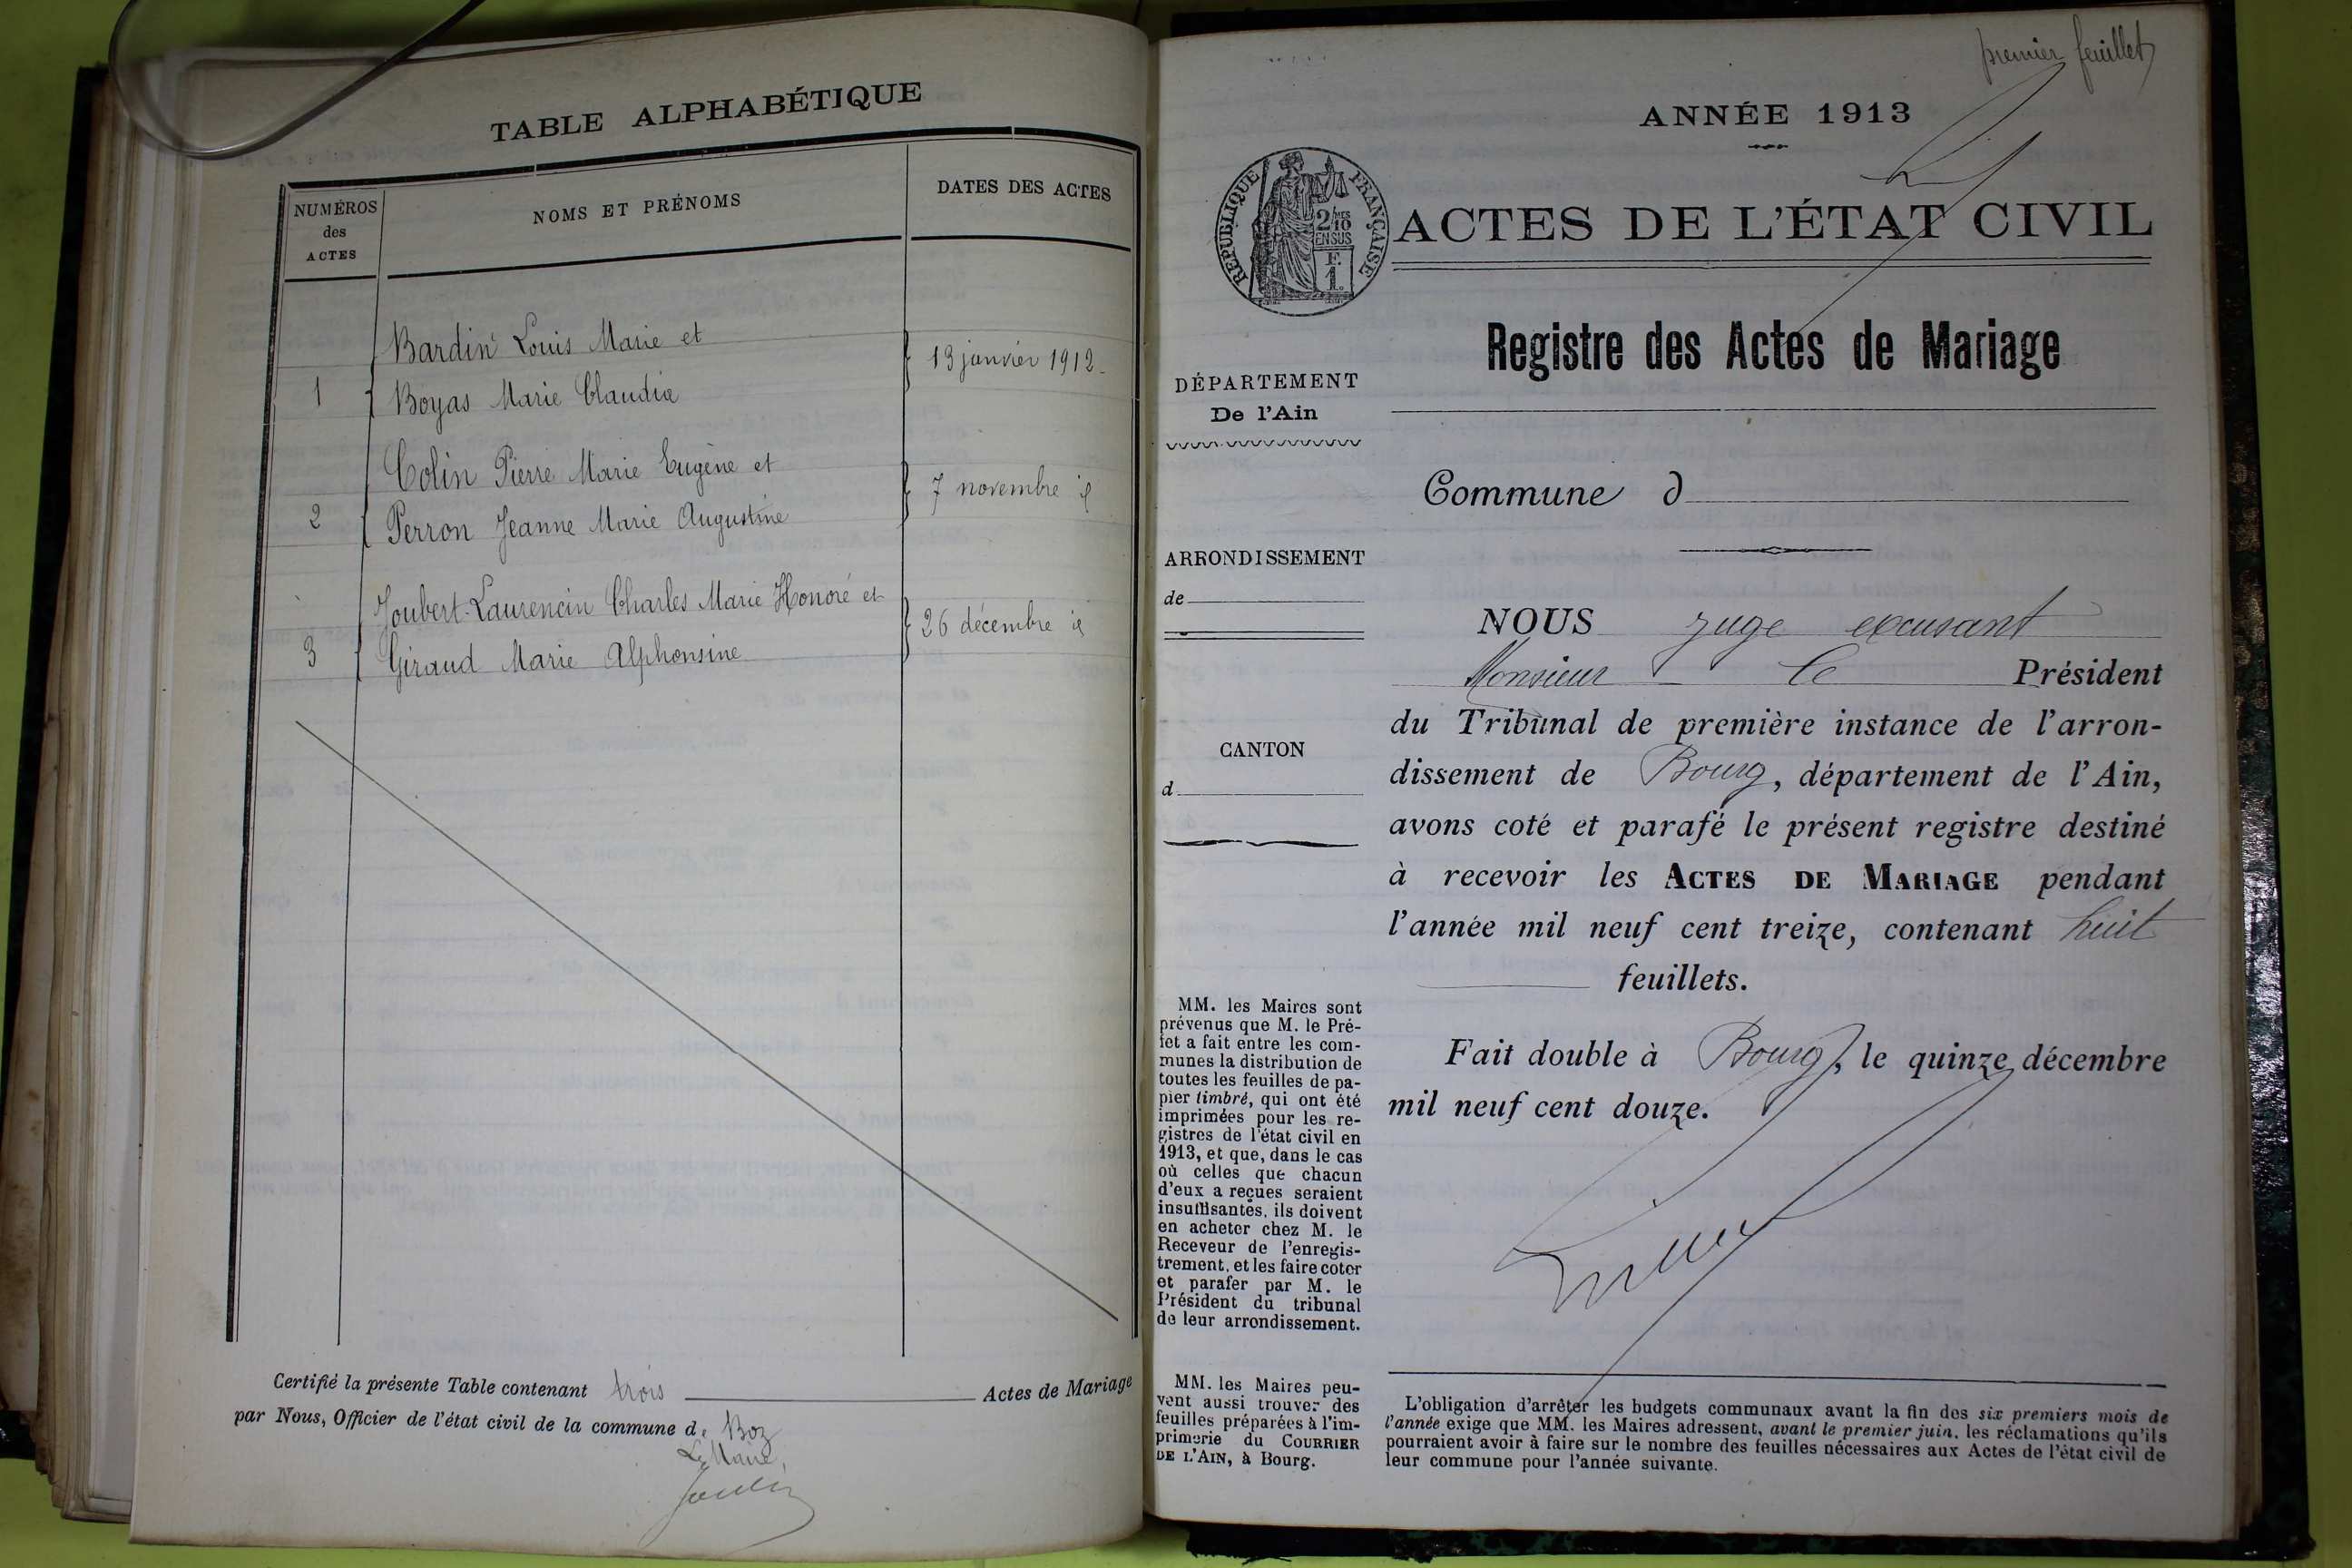 TABLE ALPHABÉTIQUE
NUMÉROS
des
ACTES
NOMS ET PRÉNOMS
DATES DES ACTES
Bardin Louis Marie et
1
Boyas Marie Claudia
13 janvier 1912.
Colin Pierre Marie Eugène et
2
Perron Jeanne Marie Augustine
7 novembre id
Joubert-Laurencin Charles Marie Honoré et
3
Giraud Marie Alphonsine
26 décembre id
Certifié la présente Table contenant trois Actes de Mariage
par Nous, Officier de l'état civil de la commune de Boz
Le Maire,
premier feuillet
ANNÉE 1913
RÉPUBLIQUE FRANÇAISE
2/10MES
EN SUS
F.
1.
ACTES DE L'ÉTAT CIVIL
Registre des Actes de Mariage
DÉPARTEMENT
De l'Ain
Commune d
ARRONDISSEMENT
de
CANTON
d
NOUS juge excusant
Monsieur le Président
du Tribunal de première instance de l'arron-
dissement de Bourg, département de l'Ain,
avons coté et parafé le présent registre destiné
à recevoir les ACTES DE MARIAGE pendant
l'année mil neuf cent treize, contenant huit
feuillets.
Fait double à Bourg, le quinze décembre
mil neuf cent douze.
MM. les Maires sont
prévenus que M. le Pré-
fet a fait entre les com-
munes la distribution de
toutes les feuilles de pa-
pier timbré, qui ont été
imprimées pour les re-
gistres de l'état civil en
1913, et que, dans le cas
où celles que chacun
d'eux a reçues seraient
insuffisantes, ils doivent
en acheter chez M. le
Receveur de l'enregis-
trement, et les faire coter
et parafer par M. le
Président du tribunal
de leur arrondissement.
MM. les Maires peu-
vent aussi trouver des
feuilles préparées à l'im-
primerie du COURRIER
DE L'AIN, à Bourg.
L'obligation d'arrêter les budgets communaux avant la fin des six premiers mois de
l'année exige que MM. les Maires adressent, avant le premier juin, les réclamations qu'ils
pourraient avoir à faire sur le nombre des feuilles nécessaires aux Actes de l'état civil de
leur commune pour l'année suivante.